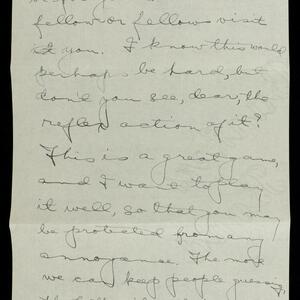 fellow or fellows visit
at you. I know this would
perhaps be hard, but
don't you see, dear, the
reflex action of it?
This is a great game,
and I want to play
it well, so that you may
be protected from any
annoyance. The more
we can keep people guessing,